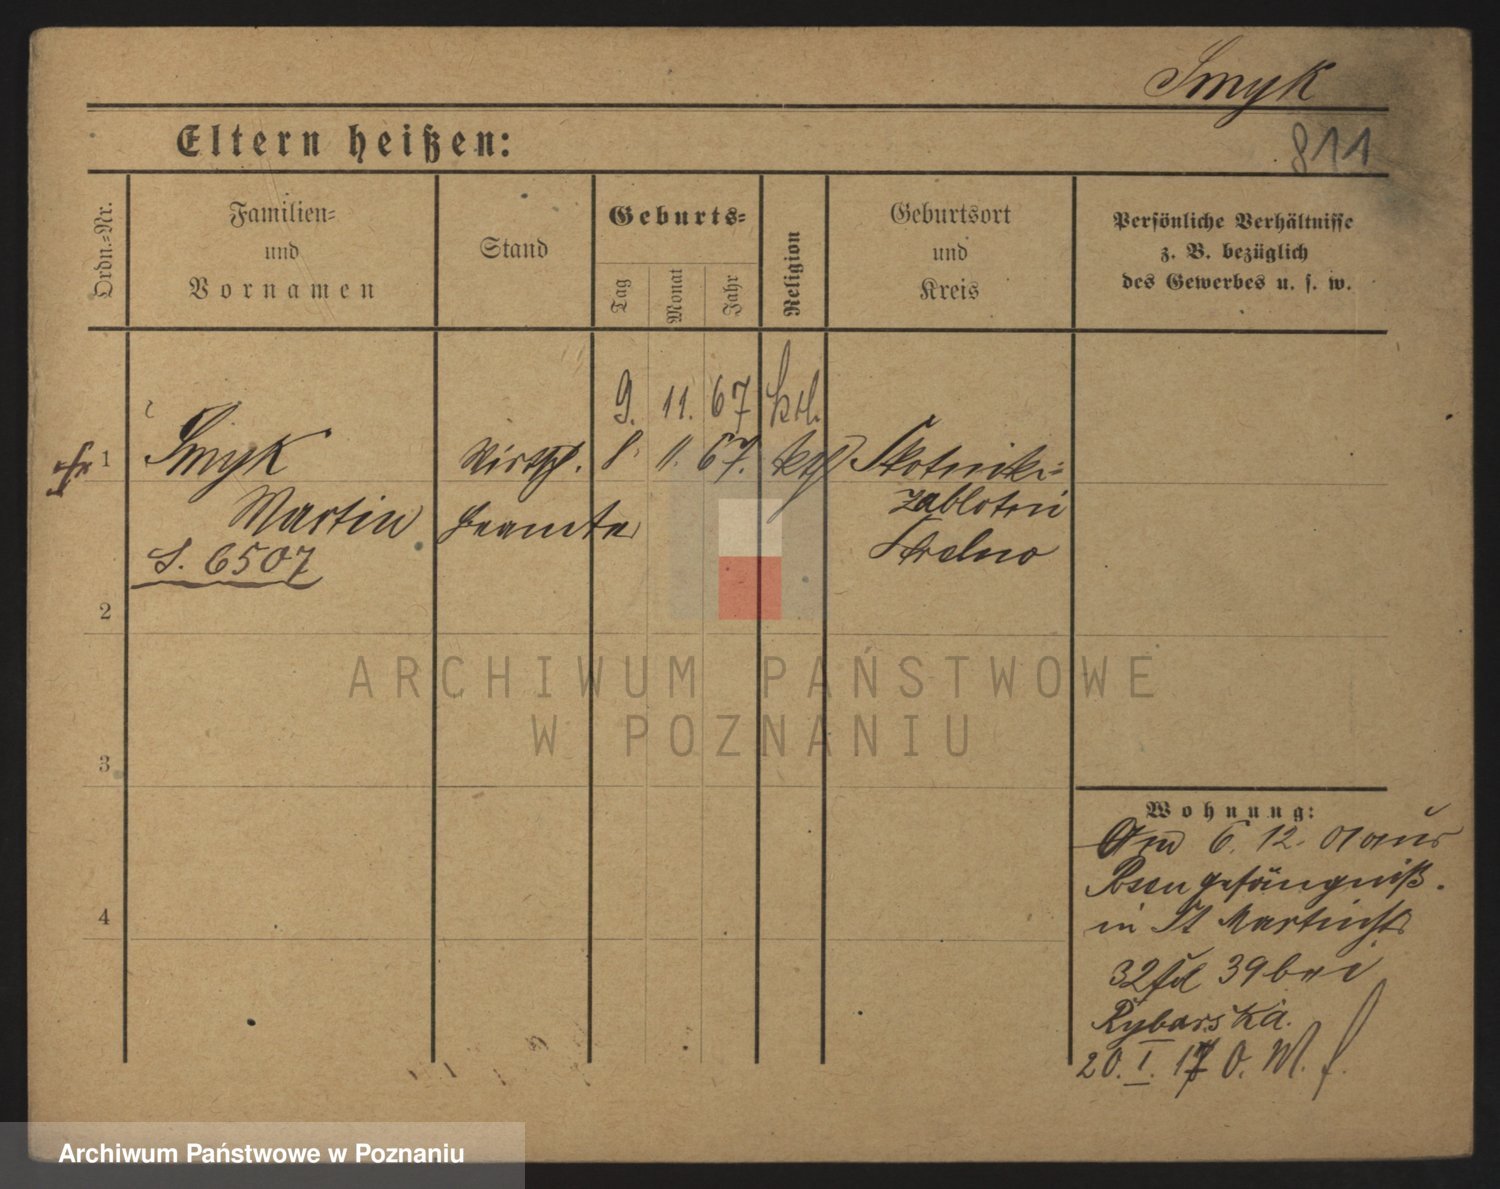 Smyk
811
Eltern heißen:
Ordn.-Nr.
Familien-
und
Vornamen
Stand
Geburts-
Tag
Monat
Jahr
Religion
Geburtsort
und
Kreis
Persönliche Verhältnisse
z. B. bezüglich
des Gewerbes u. s. w.
9. 11. 67 kth.
1 Smyk Wirtsch. 8. 11. 67. kth Skotniki-
Martin beamter zablotni
S. 6507 Strelno
2
3
4
Wohnung:
Am 6. 12. 01 aus
Posen gefängniß.
in St Martinstr
32 39 bei
Rybarska.
20. I. 17 O. M. f.
ARCHIWUM PAŃSTWOWE
W POZNANIU
Archiwum Państwowe w Poznaniu